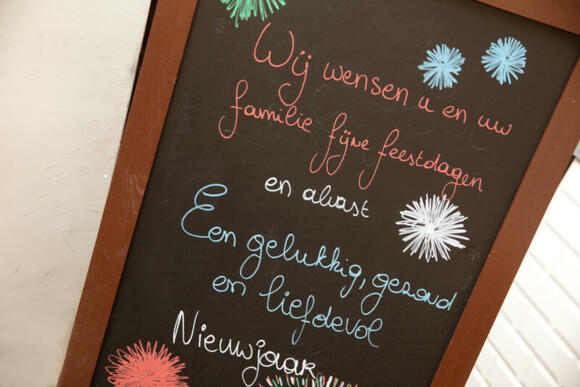 Wij wensen u en uw
familie fijne feestdagen
en alvast
Een gelukkig, gezond
en liefdevol
Nieuwjaar